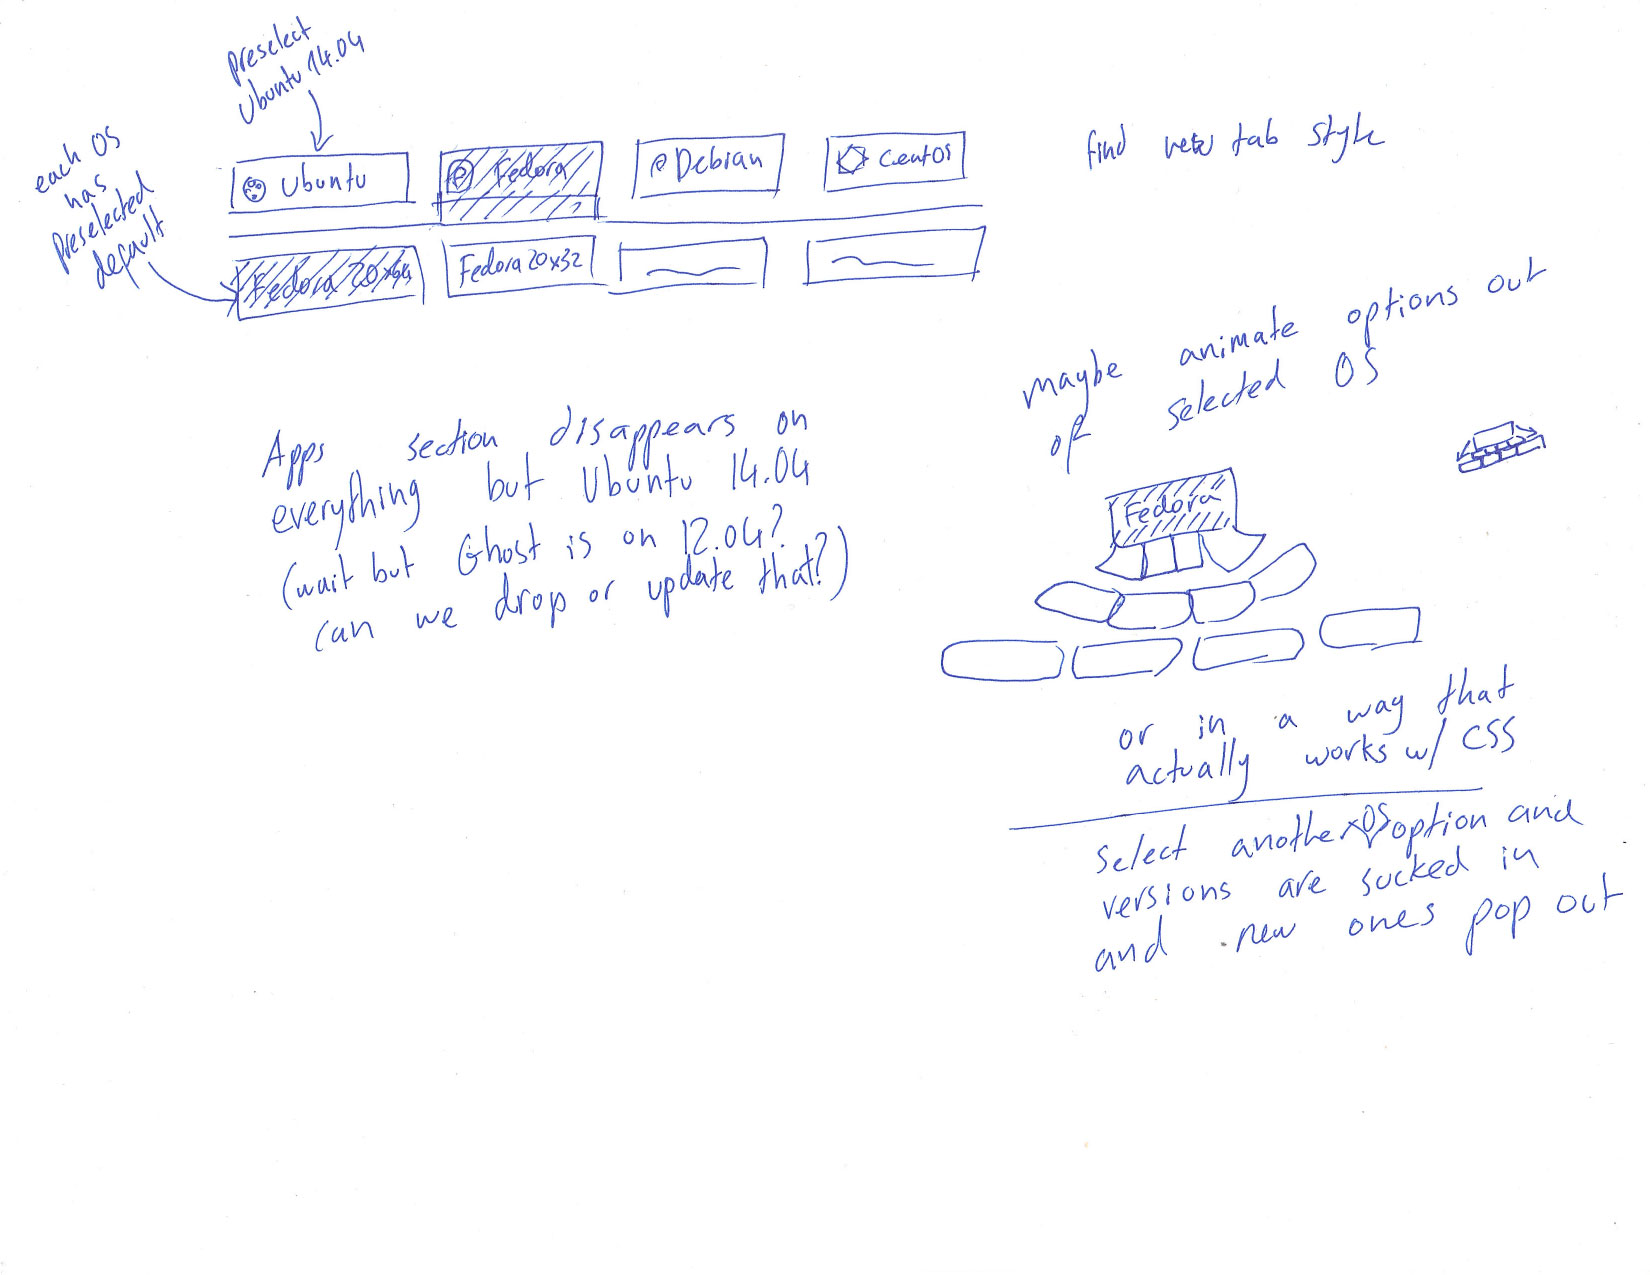 preselect
Ubuntu 14.04
each OS
has
preselected
default
Ubuntu
Fedora
Debian
CentOS
Fedora 20x64
Fedora 20x32
find new tab style
maybe animate options out
of selected OS
Apps section disappears on
everything but Ubuntu 14.04
(wait but Ghost is on 12.04?
can we drop or update that?)
Fedora
or in a way that
actually works w/ CSS
Select another OS option and
versions are sucked in
and new ones pop out